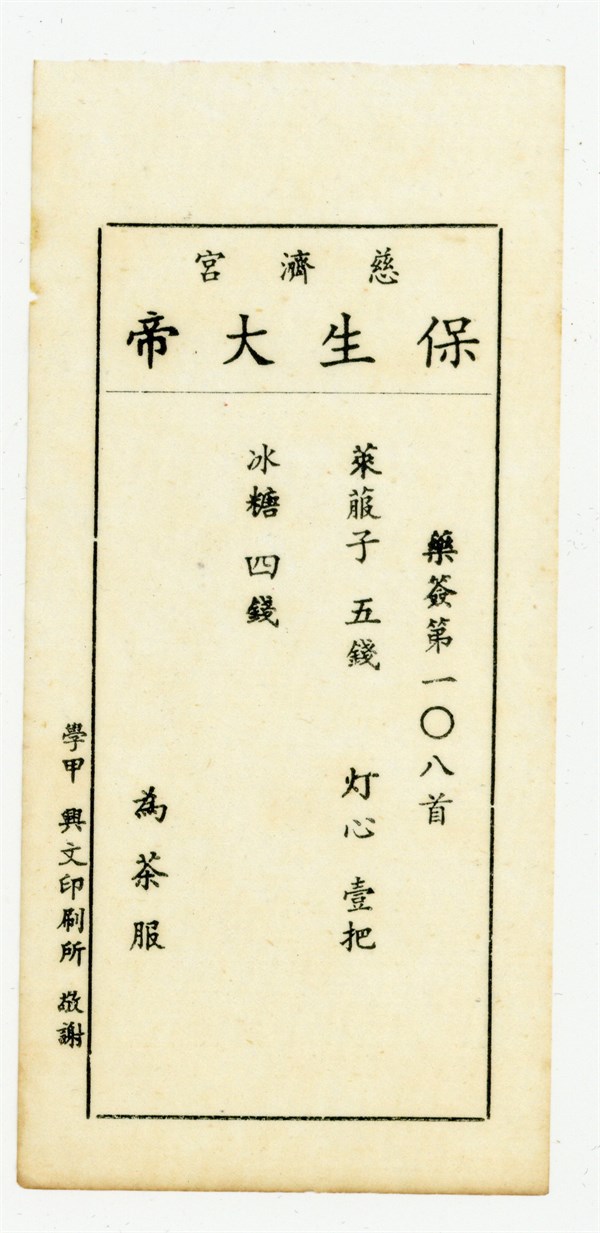 慈濟宮
保生大帝
藥簽第一〇八首
萊菔子 五錢 灯心 壹把
冰糖 四錢
為茶服
學甲 興文印刷所 敬謝